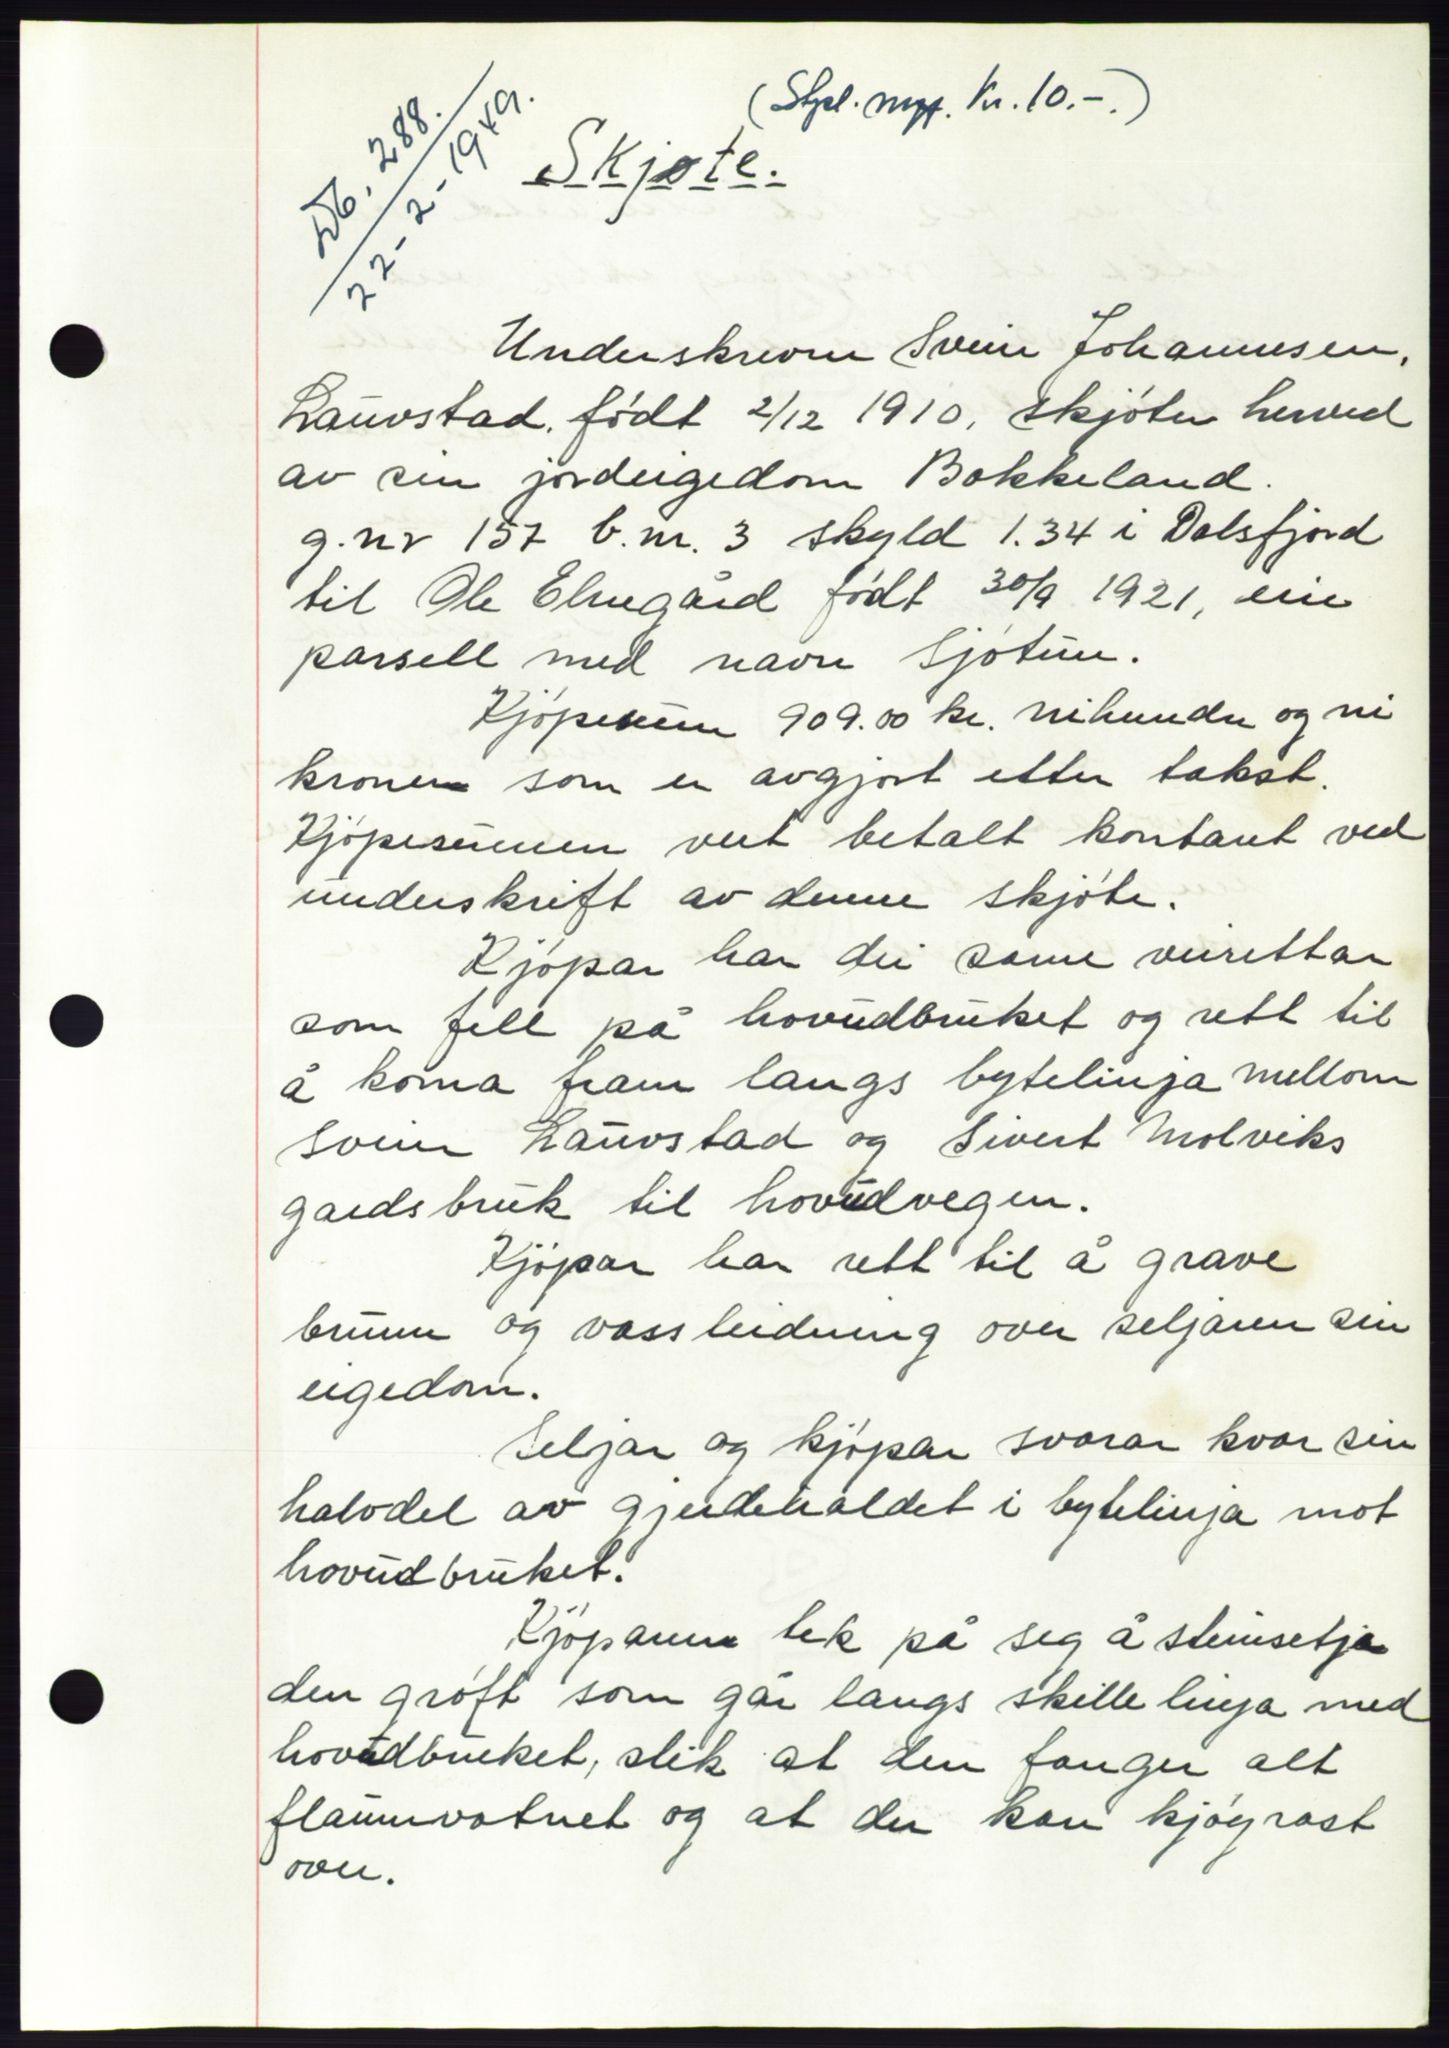 Db. 288.
22-2-1949.
(Stpl. mrk. Kr. 10.-.)
Skjøte.
Underskrevne Svein Johannesen,
Lauvstad, födt 2/12 1910, skjöter herved
av sin jordeigedom Bakkeland.
g.nr 157 b.nr. 3 skyld 1.34 i Dalsfjord
til Ole Elnegård födt 30/9 1921, ein
parsell med navn Sjötun.
Kjöpesum 909.00 kr. nihundre og ni
kroner som er avgjort etter takst.
Kjöpesummen vert betalt kontant ved
underskrift av denne skjöte.
Kjöpar har dei same veirettar
som fell på hovudbruket og rett til
å koma fram langs bytelinja mellom
Svein Lauvstad og Sivert Molviks
gardsbruk til hovudvegen.
Kjöpar har rett til å grave
brunn og vassleidning over seljaren sin
eigedom.
Seljar og kjöpar svarar kvar sin
halvdel av gjerdehaldet i bytelinja mot
hovudbruket.
Kjöparen tek på seg å steinsetja
den gröft som går langs skillelinja med
hovudbruket, slik at den fanger alt
flaumvatnet og at der kan kjöyrast
over.